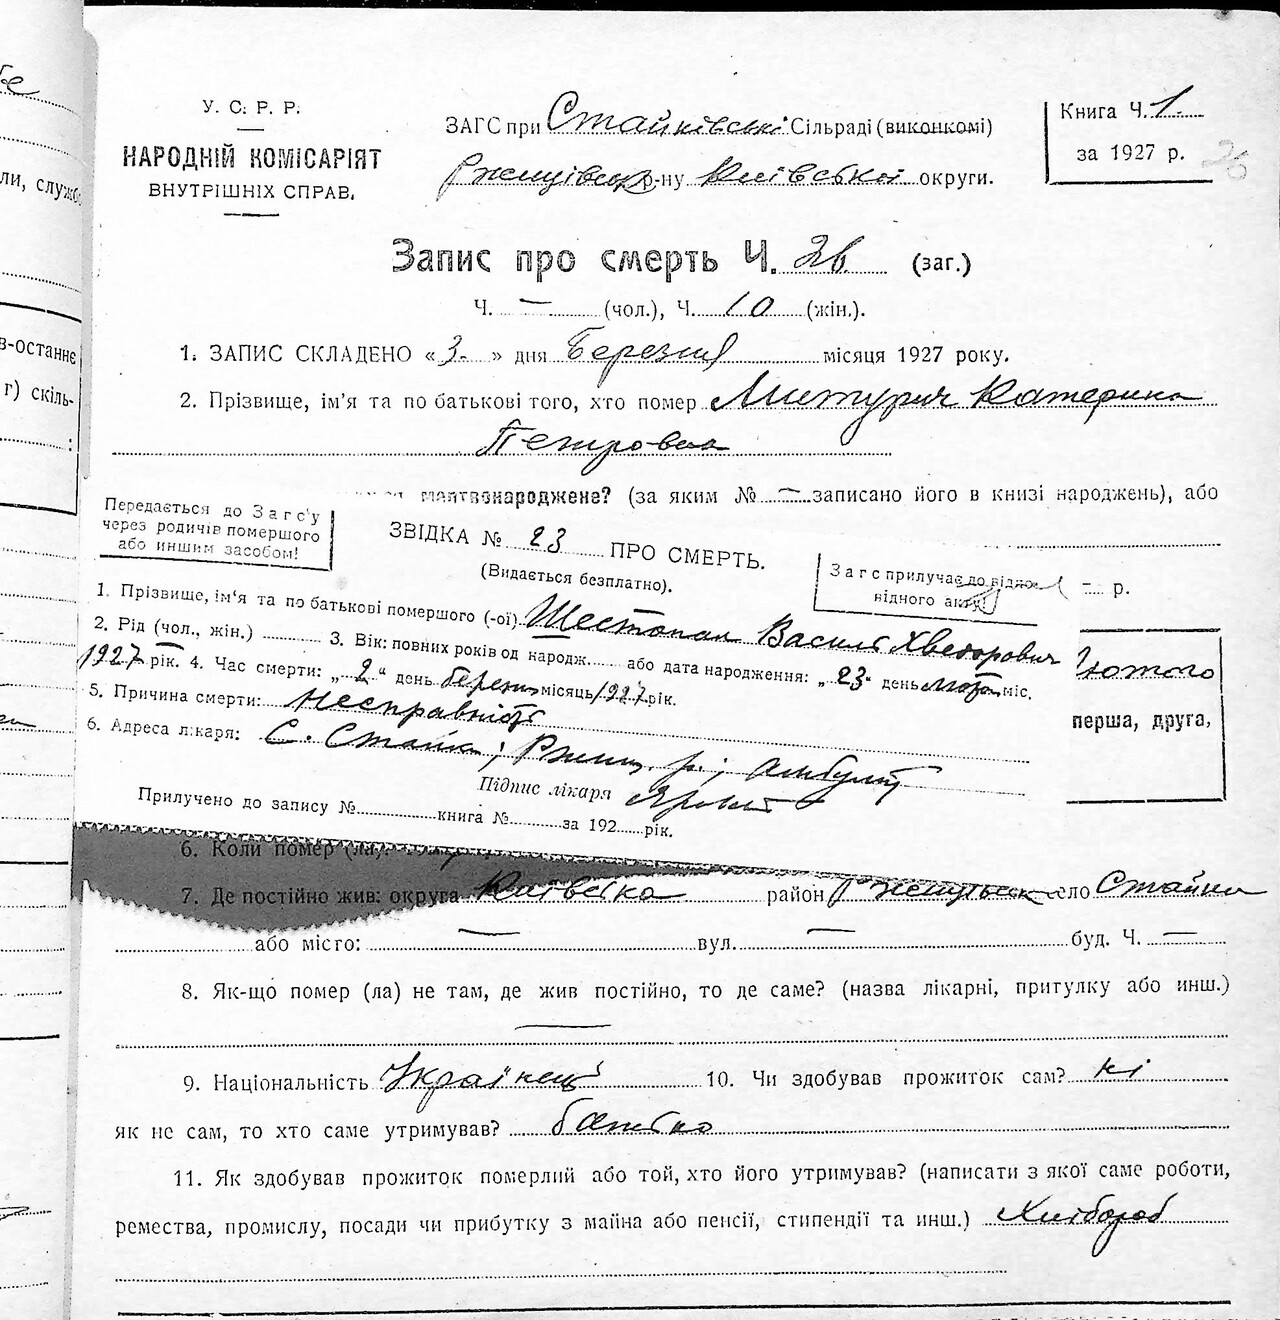 У. С. Р. Р.
НАРОДНІЙ КОМІСАРІЯТ
ВНУТРІШНІХ СПРАВ.
ЗАГС при Стайківські Сільраді (виконкомі)
Ржищівськ р-ну Київської округи.
Книга Ч. 1.
за 1927 р.
26
Запис про смерть Ч. 26. (заг.)
Ч. — (чол.), Ч. 10 (жін.).
1. ЗАПИС СКЛАДЕНО « 3. » дня Березня місяця 1927 року.
2. Прізвище, ім'я та по батькові того, хто помер Митурич Катерина
Петровна
мертвонароджене? (за яким № — записано його в книзі народжень), або
— р.
Лютого
перша, друга,
Передається до Загс'у
через родичів помершого
або иншим засобом!
ЗВІДКА № 23 ПРО СМЕРТЬ.
(Видається безплатно).
Загс прилучає до відпо-
відного акту!
1. Прізвище, ім'я та по батькові помершого (-ої) Шестопал Василь Хведорович
2. Рід (чол., жін.) 3. Вік: повних років од народж. або дата народження: „ 23 “ день лютого міс.
1927 рік. 4. Час смерти: „ 2 “ день березня місяць 1927 рік.
5. Причина смерти:
6. Адреса лікаря: С. Стайки; Ржищ. р.;
Підпис лікаря
Прилучено до запису № книга № за 192 рік.
6. Коли помер (ла).
7. Де постійно жив: округа Київська район село Стайки
або місто: — вул. — буд. Ч. —
8. Як-що помер (ла) не там, де жив постійно, то де саме? (назва лікарні, притулку або инш.)
—
9. Національність Українець 10. Чи здобував прожиток сам? ні
як не сам, то хто саме утримував? батько
11. Як здобував прожиток померлий або той, хто його утримував? (написати з якої саме роботи,
ремества, промислу, посади чи прибутку з майна або пенсії, стипендії та инш.) Хлібороб
ли, служб
в-останнє
г) скіль-